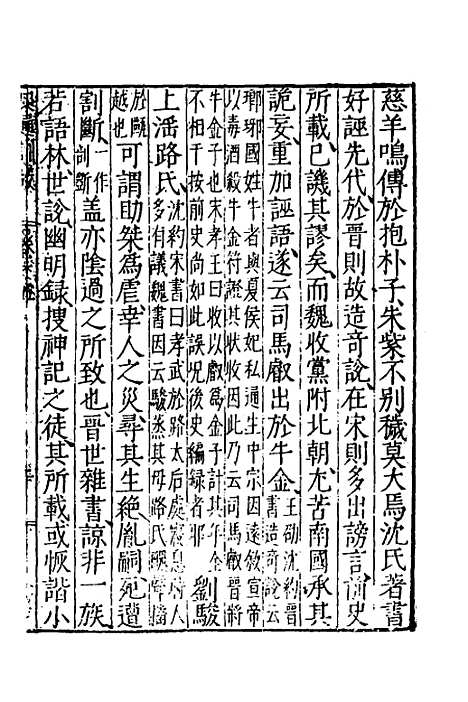 慈羊鳴傳於抱朴子朱紫不別穢莫大焉沈氏著書
好誣先代於晉則故造奇說在宋則多出謗言前史
所載已譏其謬矣而魏收黨附北朝尤苦南國承其
詭妄重加誣語遂云司馬叡出於牛金王劭沈約晉
書造奇說云
瑯琊國姓牛者與夏侯妃私通生中宗因遠敘宣帝
以毒酒殺牛金符證其狀收因此乃云司馬叡晉將
牛金子也宋孝王曰收以叡為金子計其年全
不相干按前史尚如此誤況後史編錄者耶劉駿
上淫路氏沈約宋書曰孝武於路太后處寢息時人
多有議魏書因云駿烝其母路氏穢聲播
於甌
越也可謂助桀為虐幸人之災尋其生絕胤嗣死遭
割斷一作
訓斷蓋亦陰過之所致也晉世雜書諒非一族
若語林世說幽明錄搜神記之徒其所載或恢諧小